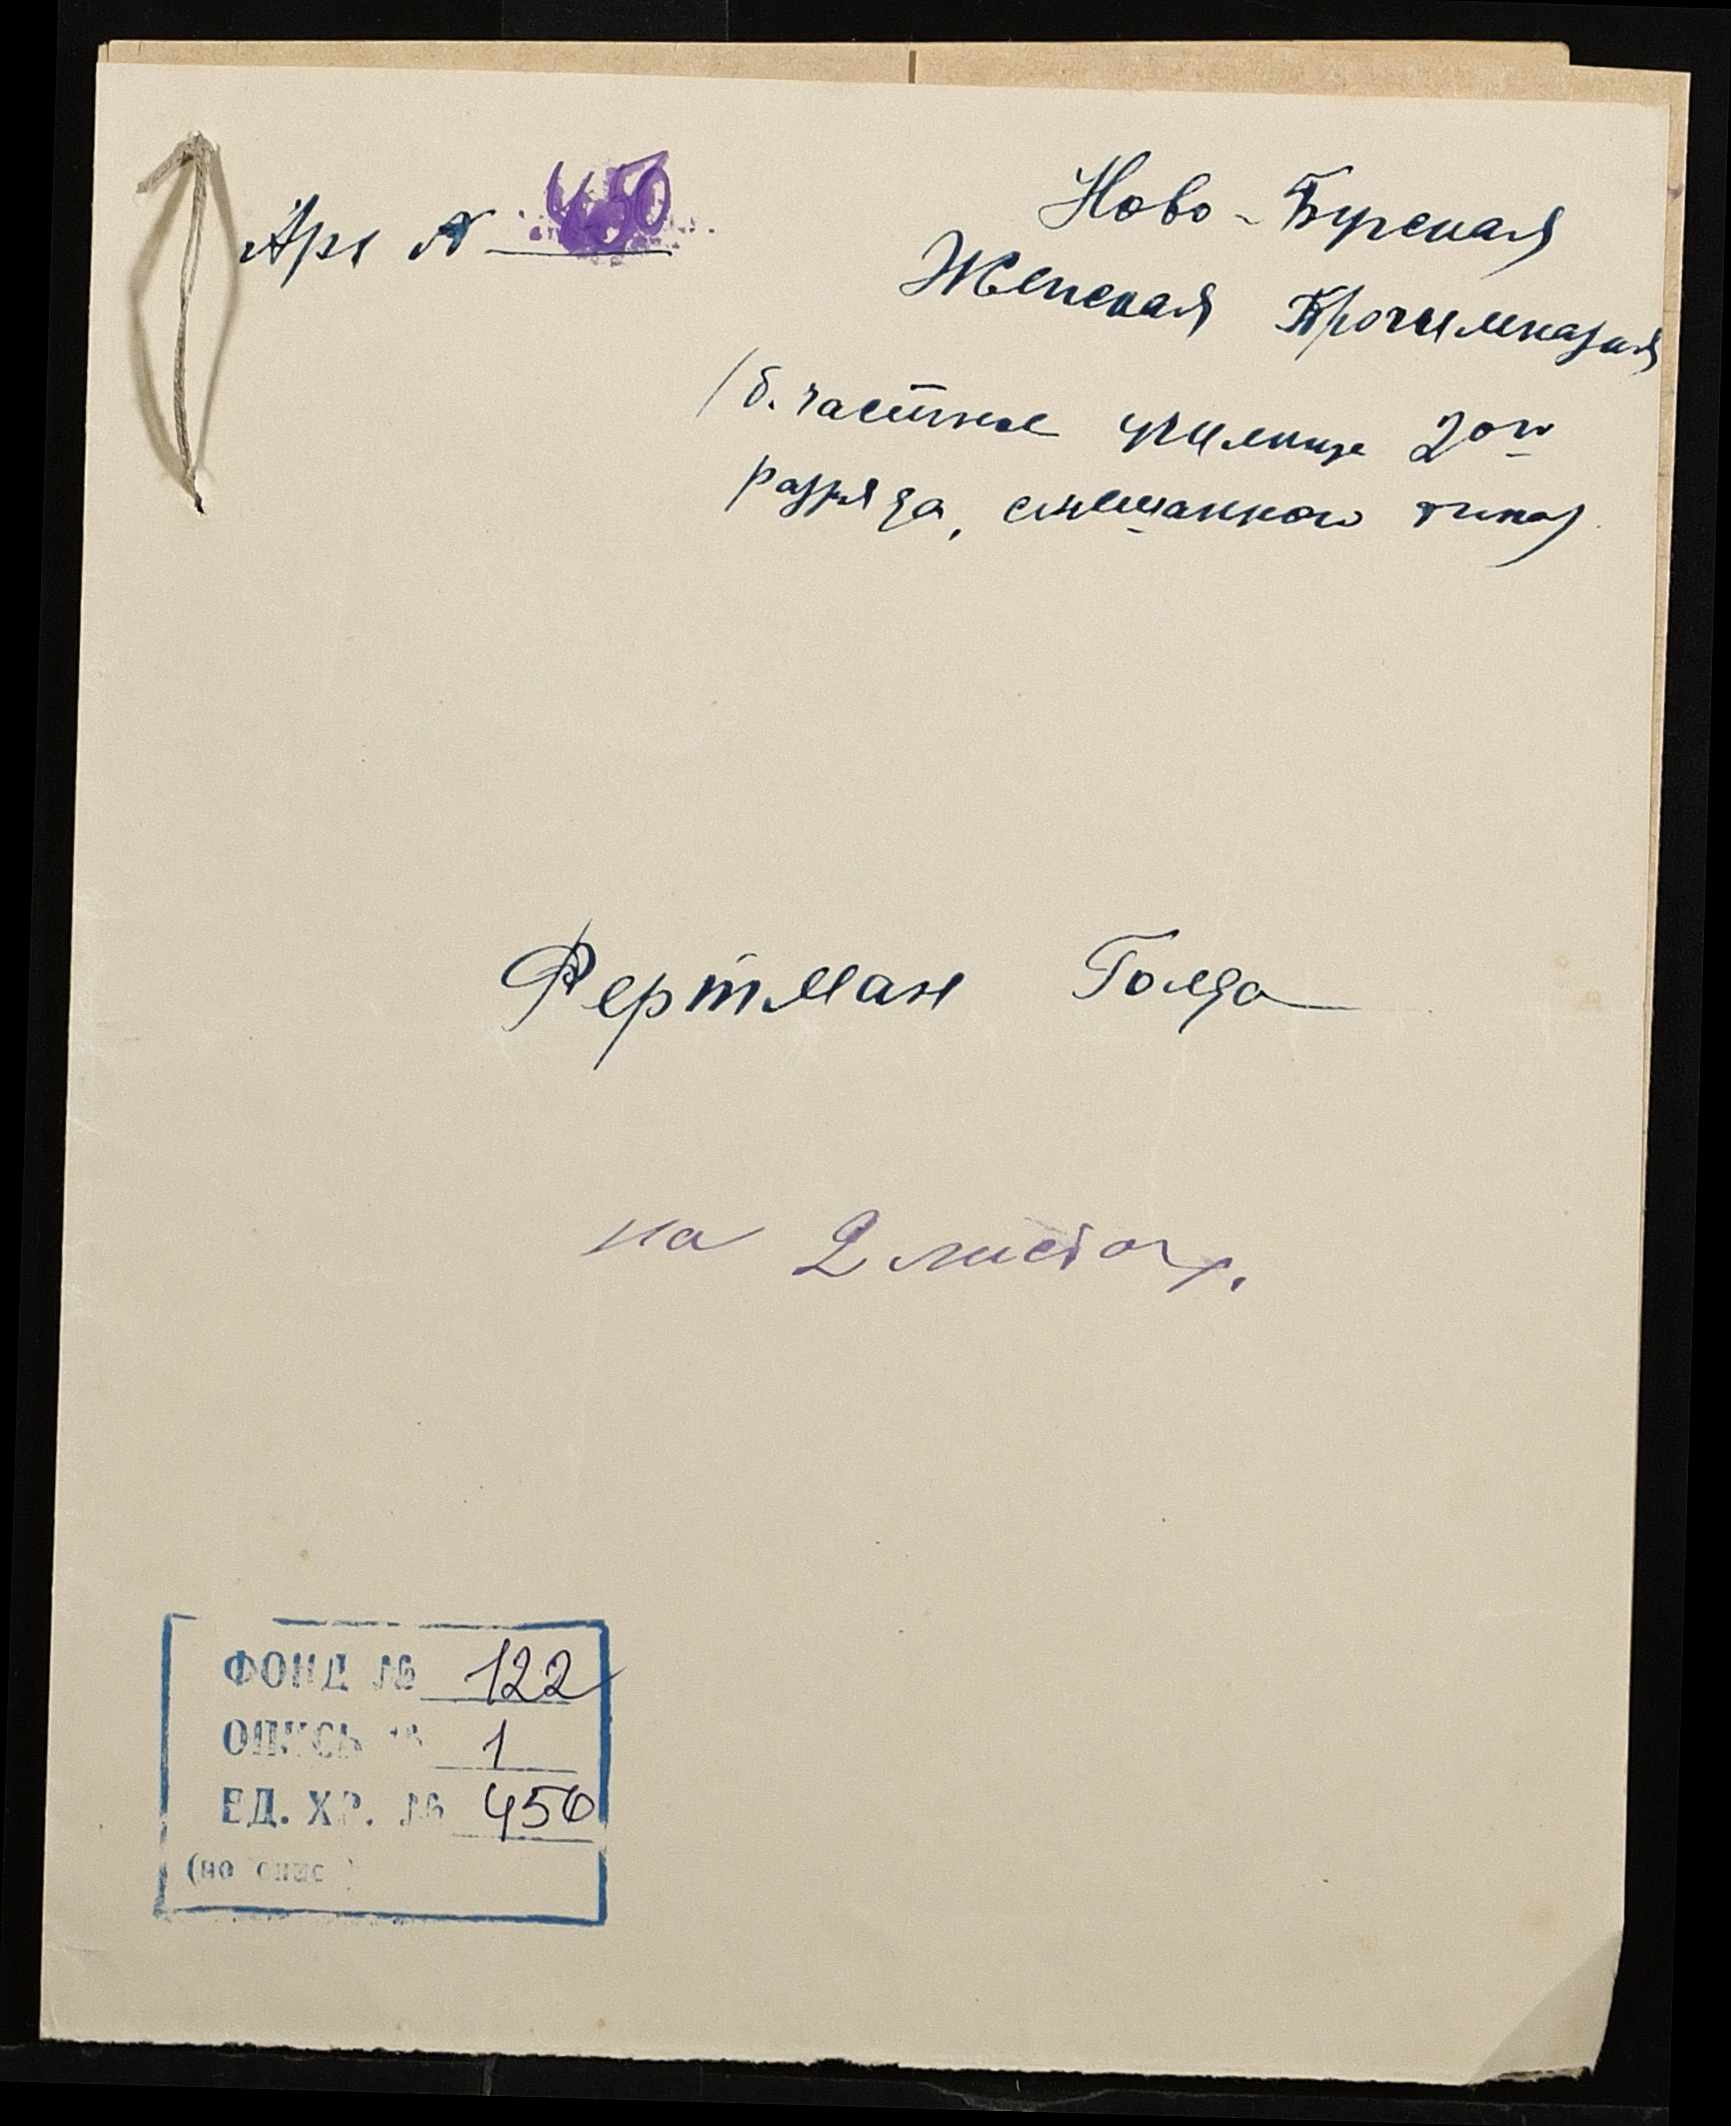 Арх № 450
Ново-Бугская
Женская Прогимназия
(б. частное училище 2ого
разряда, смешанного типа)
Фертман Голда
на 2 листах.
ФОНД № 122
ОПИСЬ № 1
ЕД. ХР. № 450
(по опис )